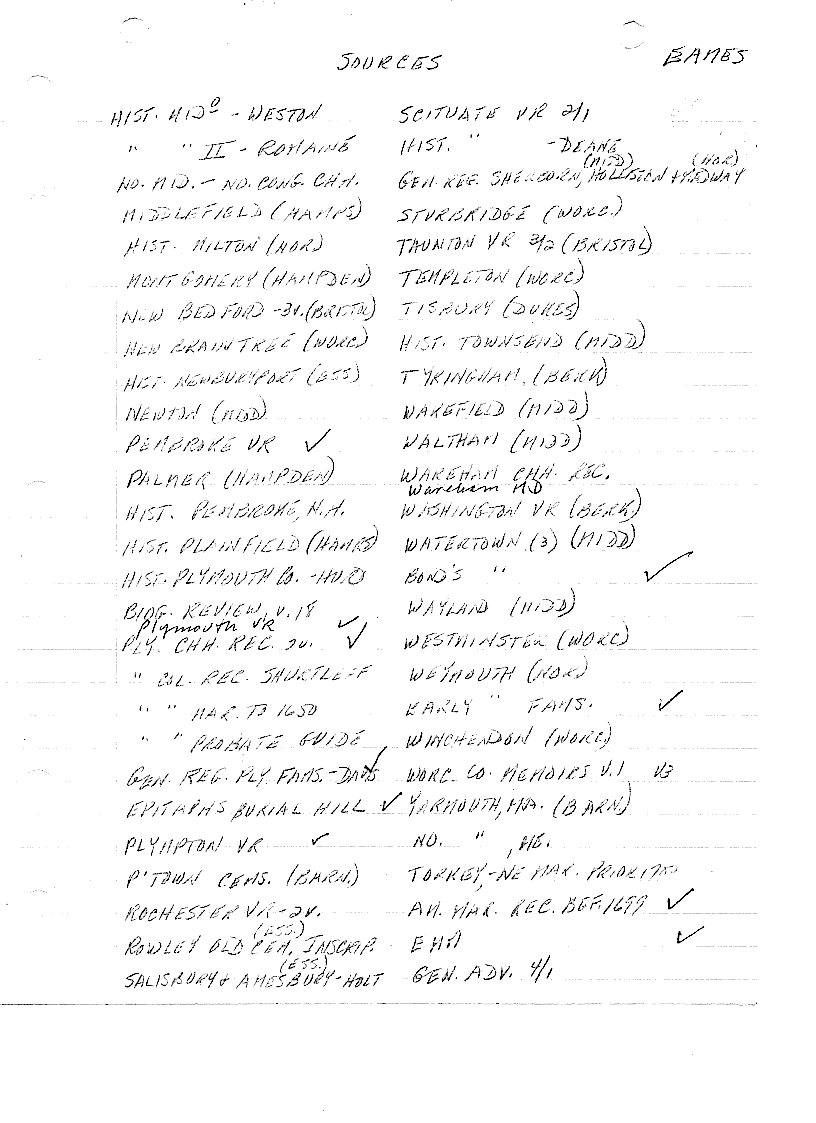 SOURCES
EAMES
HIST. MIDO - WESTON
" " II - ROMAINE
NO. MID. - NO. CONG. CHH.
MIDDLEFIELD (HAMPS)
HIST. MILTON (NOR)
MONTGOMERY (HAMPDEN)
NEW BEDFORD - 3V. (BRISTOL)
NEW BRAINTREE (WORC)
HIST. NEWBURYPORT (ESS)
NEWTON (MIDD)
PEMBROKE VR ✓
PALMER (HAMPDEN)
HIST. PEMBROKE, N.H.
HIST. PLAINFIELD (HAMPS)
HIST. PLYMOUTH CO. - HURD
BIOG. REVIEW, V. 18
Plymouth VR ✓
PLY. CHH. REC. 2V. ✓
" COL. REC. SHURTLEFF
" " MAR. TO 1650
" " PROBATE GUIDE
GEN. REG. PLY FAMS. - DAVIS ✓
EPITAPHS BURIAL HILL ✓
PLYMPTON VR ✓
P'TOWN CEMS. (BARN.)
ROCHESTER VR - 2V.
(ESS.)
ROWLEY OLD CEM. INSCRIP.
(ESS.)
SALISBURY & AMESBURY - HOLT
SCITUATE VR 2/1
HIST. " - DEANE
(MIDD) (NOR)
GEN. REG. SHERBORN, HOLLISTON + MEDWAY
STURBRIDGE (WORC.)
TAUNTON VR 3/2 (BRISTOL)
TEMPLETON (WORC)
TISBURY (DUKES)
HIST. TOWNSEND (MIDD)
TYRINGHAM, (BERK)
WAKEFIELD (MIDD)
WALTHAM (MIDD)
WAREHAM CHH. REC.
Wareham
WASHINGTON VR (BERK)
WATERTOWN (3) (MIDD)
BOND'S " ✓
WAYLAND (MIDD)
WESTMINSTER (WORC)
WEYMOUTH (NOR)
EARLY " FAMS. ✓
WINCHENDON (WORC)
WORC. CO. MEMOIRS V.1 V3
YARMOUTH, MA. (BARN)
NO. " , ME.
TORREY, - NE MAR. PRIOR 1700
AM. MAR. REC. BEF. 1699 ✓
✓
GEN. ADV. 4/1